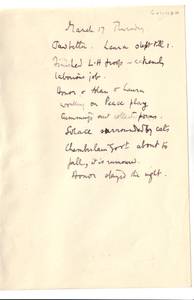 March 17 Thursday
Jaw better. Laura slept till 1.
Finished L-H proofs – extremely
laborious job.
Honor & Alan & Laura
working on Peace play
Cummings and collected poems.
Solace surrounded by cats
Chamberlain Govt about to
fall, it is rumoured.
Honor stayed the night.